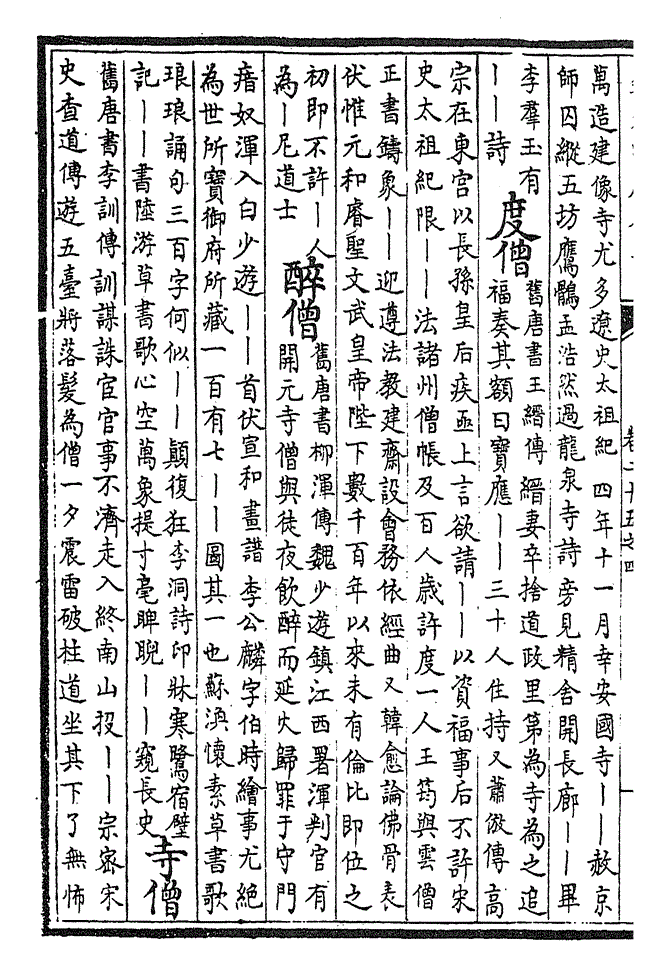 萬造建像寺尤多遼史太祖紀 四年十一月幸安國寺――赦京
師囚縱五坊鷹鶻孟浩然過龍泉寺詩旁見精舍開長廊――畢
李羣玉有
――詩
度僧
舊唐書王縉傳縉妻卒捨道政里第為寺為之追
福奏其額曰寶應――三十人住持又蕭倣傳高
宗在東宫以長孫皇后疾亟上言欲請――以資福事后不許宋
史太祖紀限――法諸州僧帳及百人歲許度一人王筠與雲僧
正書鑄象――迎遵法教建齋設會務依經曲又韓愈論佛骨表
伏惟元和睿聖文武皇帝陛下數千百年以來未有倫比即位之
初即不許―人
為―尼道士
醉僧
舊唐書柳渾傳魏少遊鎮江西署渾判官有
開元寺僧與徒夜飲醉而延火歸罪于守門
瘖奴渾入白少遊――首伏宣和畫譜李公麟字伯時繪事尤絶
為世所寶御府所藏一百有七――圖其一也蘇渙懷素草書歌
琅琅誦句三百字何似――顛復狂李洞詩印牀寒鷺宿壁
記――書陸游草書歌心空萬象提寸毫睥睨――窺長史
寺僧
舊唐書李訓傳訓謀誅宦官事不濟走入終南山投――宗密宋
史查道傳遊五臺將落髮為僧一夕震雷破柱道坐其下了無怖